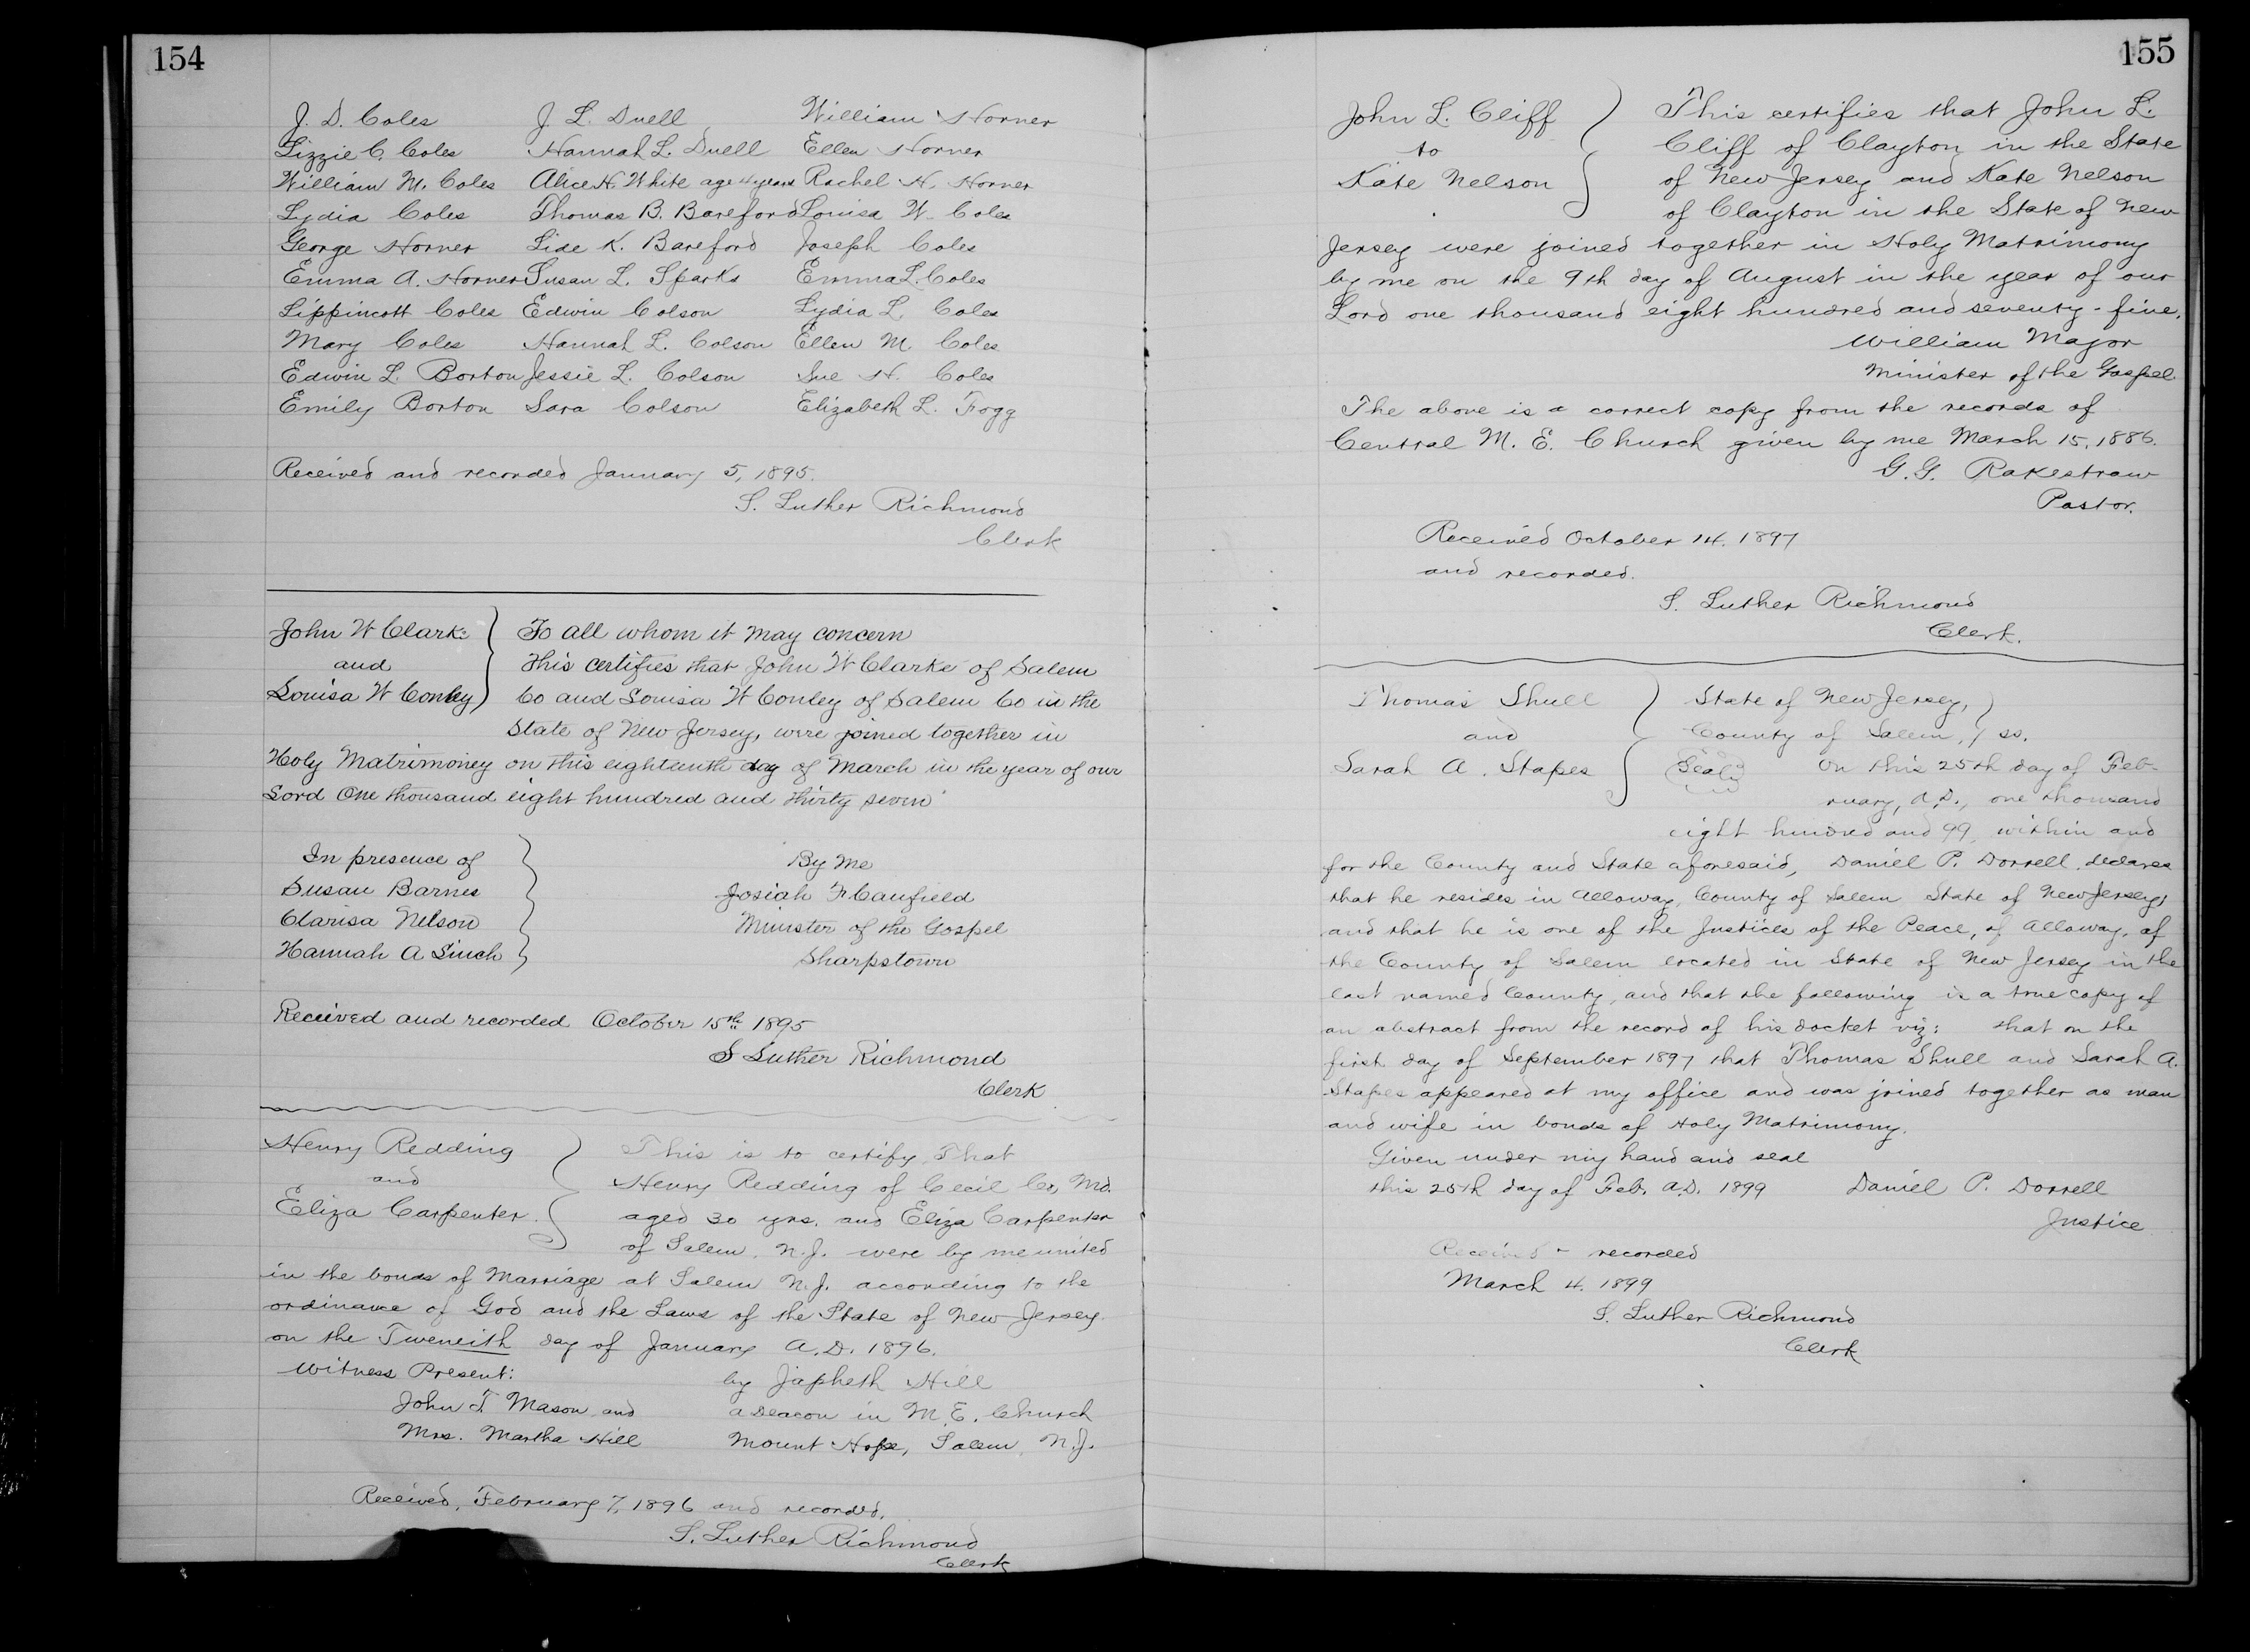 154
J. D. Coles J. L. Duell William Horner
Lizzie C. Coles Hannah L. Duell Ellen Horner
William M. Coles Alice H. White age 4 years Rachel H. Horner
Lydia Coles Thomas B. Bareford Louisa W. Coles
George Horner Lide K. Bareford Joseph Coles
Emma A. Horner Susan L. Sparks Emma L. Coles
Lippincott Coles Edwin Colson Lydia L. Coles
Mary Coles Hannah L. Colson Ellen M. Coles
Edwin L. Borton Jessie L. Colson Sue H. Coles
Emily Borton Sara Colson Elizabeth L. Fogg
Received and recorded January 5, 1895.
S. Luther Richmond
Clerk
John W Clarke
and
Louisa W Conley
To all whom it may concern
This certifies that John W Clarke of Salem
Co and Louisa W Conley of Salem Co in the
State of New Jersey, were joined together in
Holy Matrimoney on this eighteenth day of March in the year of our
Lord One thousand eight hundred and thirty seven
In presence of
Susan Barnes
Clarisa Nelson
Hannah A Sinch
By Me
Josiah F Canfield
Minister of the Gospel
Sharpstown
Received and recorded October 15th 1895
S Luther Richmond
Clerk
Henry Redding
and
Eliza Carpenter.
This is to certify That
Henry Redding of Cecil Co, Md.
aged 30 yrs. and Eliza Carpenter
of Salem, N.J. were by me united
in the bonds of Marriage at Salem N.J. according to the
ordinance of God and the Laws of the State of New Jersey.
on the Tweneith day of January A.D. 1896.
Witness Present: by Japheth Hill
John T. Mason and a Deacon in M. E. Church
Mrs. Martha Hill Mount Hope, Salem, N.J.
Received, February 7, 1896 and recorded,
S. Luther Richmond
Clerk
155
John L. Cliff
to
Kate Nelson
This certifies that John L.
Cliff of Clayton in the State
of New Jersey and Kate Nelson
of Clayton in the State of New
Jersey were joined together in Holy Matrimony
by me on the 9th day of August in the year of our
Lord one thousand eight hundred and seventy-five.
William Major
Minister of the Gospel
The above is a correct copy from the records of
Central M. E. Church given by me March 15, 1886.
G. G. Rakestraw
Pastor.
Received October 14. 1897
and recorded.
S. Luther Richmond
Clerk.
Thomas Shull
and
Sarah A. Stapes
State of New Jersey,
County of Salem, ss.
Seal On this 25th day of Feb-
ruary, A.D., one thousand
eight hundred and 99, within and
for the County and State aforesaid, Daniel P. Dorrell declares
that he resides in Alloway, County of Salem State of New Jersey,
and that he is one of the Justices of the Peace, of Alloway, of
the County of Salem located in State of New Jersey in the
last named County, and that the following is a true copy of
an abstract from the record of his docket viz: that on the
first day of September 1897 that Thomas Shull and Sarah A.
Stapes appeared at my office and was joined together as man
and wife in bonds of Holy Matrimony.
Given under my hand and seal
this 25th day of Feb. A.D. 1899 Daniel P. Dorrell
Justice
Received & recorded
March 4. 1899
S. Luther Richmond
Clerk